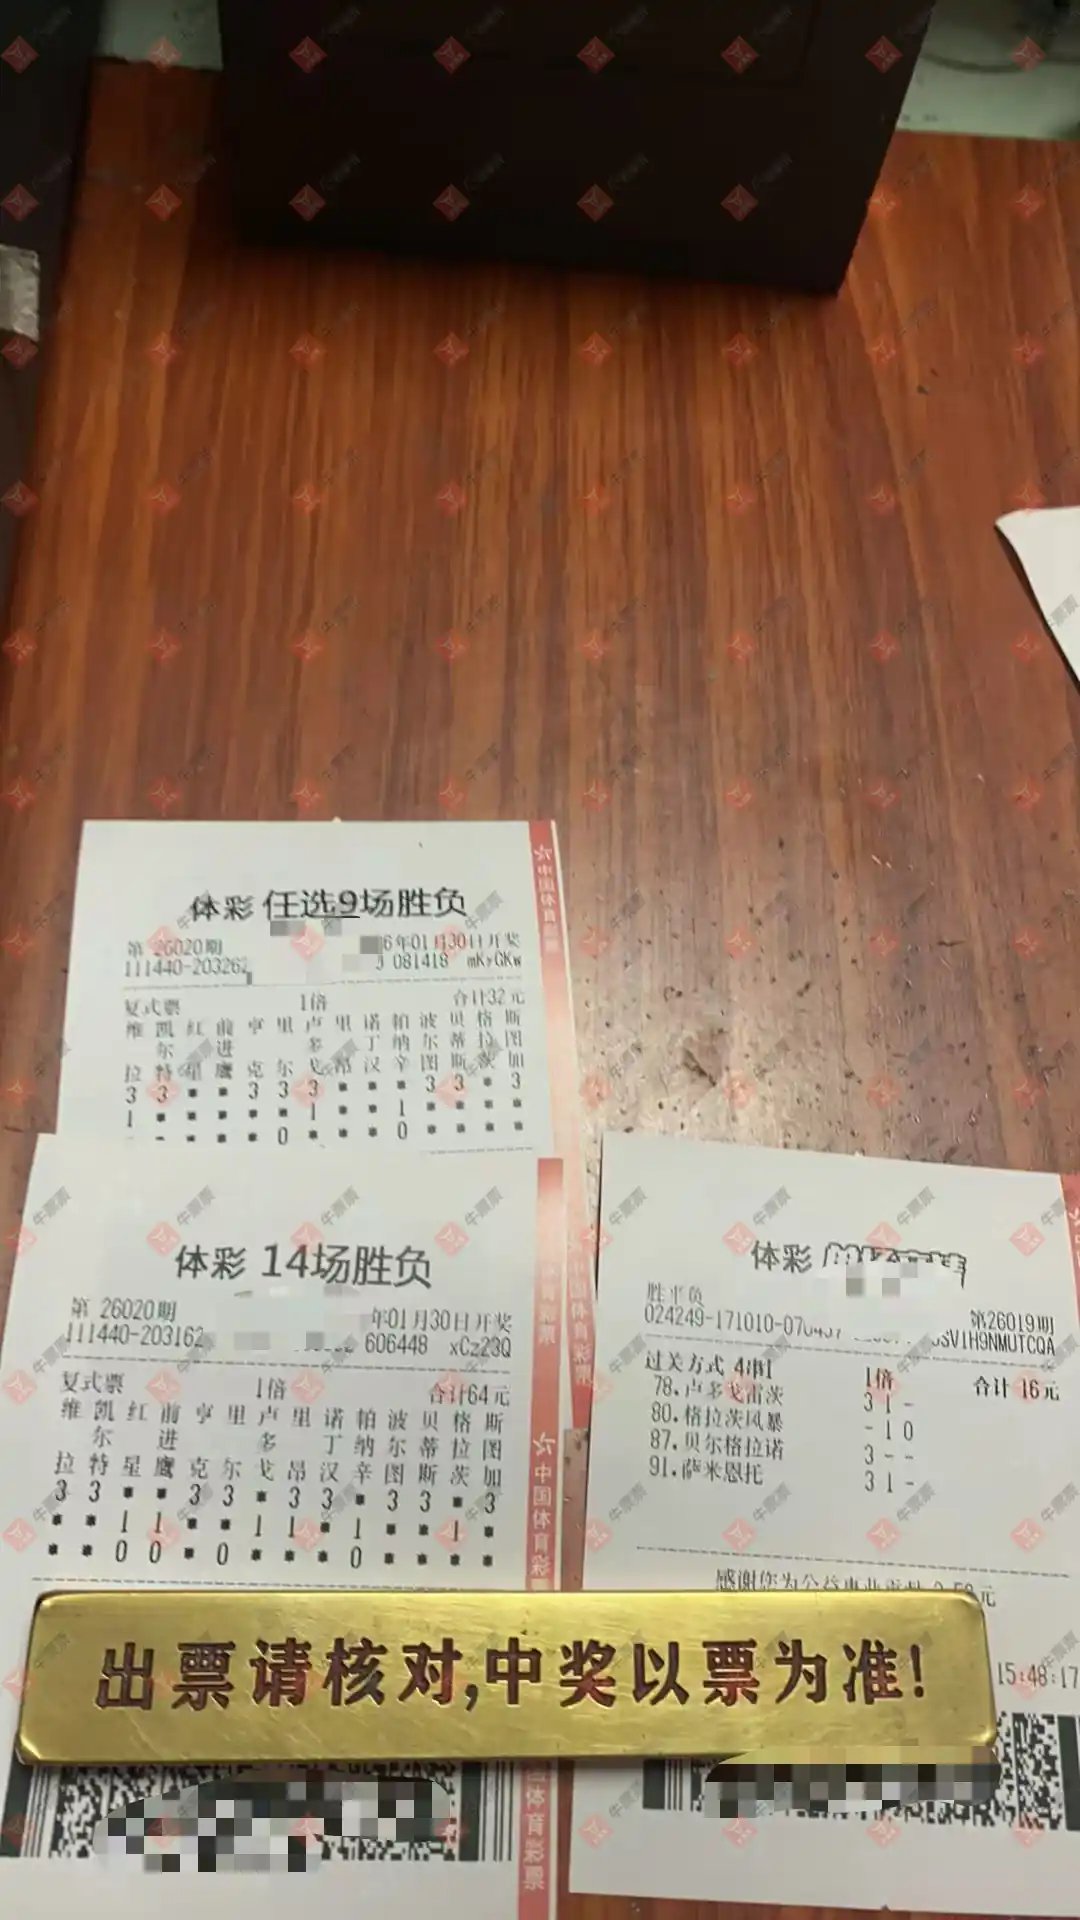 体彩 任选9场胜负
第 26020期
6年01月30日开奖
111440-203262
081418 mKyGKw
复式票 1倍 合计32元
维 凯 红 前 亨 里 卢 里 诺 帕 波 贝 格 斯
尔 进 多 丁 纳 尔 蒂 拉 图
拉 特 星 鹰 克 尔 戈 昂 汉 辛 图 斯 茨 加
3 3 * * 3 3 3 * * * 3 3 * 3
1 * * * * * 1 * * 1 * * * *
* * * * 0 * * * 0 * * * *
体彩 14场胜负
第 26020期
年01月30日开奖
111440-203162
606448 xCz23Q
复式票 1倍 合计64元
维 凯 红 前 亨 里 卢 里 诺 帕 波 贝 格 斯
尔 进 多 丁 纳 尔 蒂 拉 图
拉 特 星 鹰 克 尔 戈 昂 汉 辛 图 斯 茨 加
3 3 * * 3 3 * 3 3 * 3 3 * 3
* * 1 1 * * 1 1 * 1 * * 1 *
* * 0 0 * 0 * * * 0 * * * *
体彩
胜平负
第26019期
024249-171010-070437
SV1H9NMUTCQA
过关方式 4串1 1倍 合计 16元
78.卢多戈雷茨 3 1 -
80.格拉茨风暴 - 1 0
87.贝尔格拉诺 3 - -
91.萨米恩托 3 1 -
感谢您为公益事业贡献 元
出票请核对,中奖以票为准!
15:48:17
中国体育彩票
中国体育彩票
牛票票